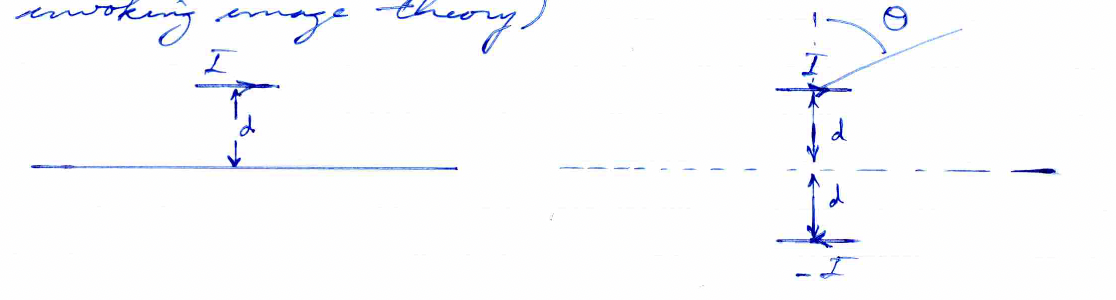 invoking image theory)
Θ
I
I
d
d
d
-I